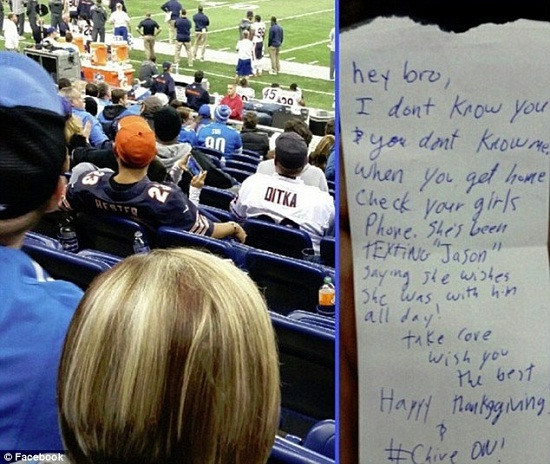 45
20
80
HESTER
23
DITKA
hey bro,
I dont know you
& you dont know me
when you get home
Check your girls
Phone. She's been
TEXTING "Jason"
Saying she wishes
She was with him
all day!
take care
wish you
the best
Happy thanksgiving
&
#Chive ON!
© Facebook